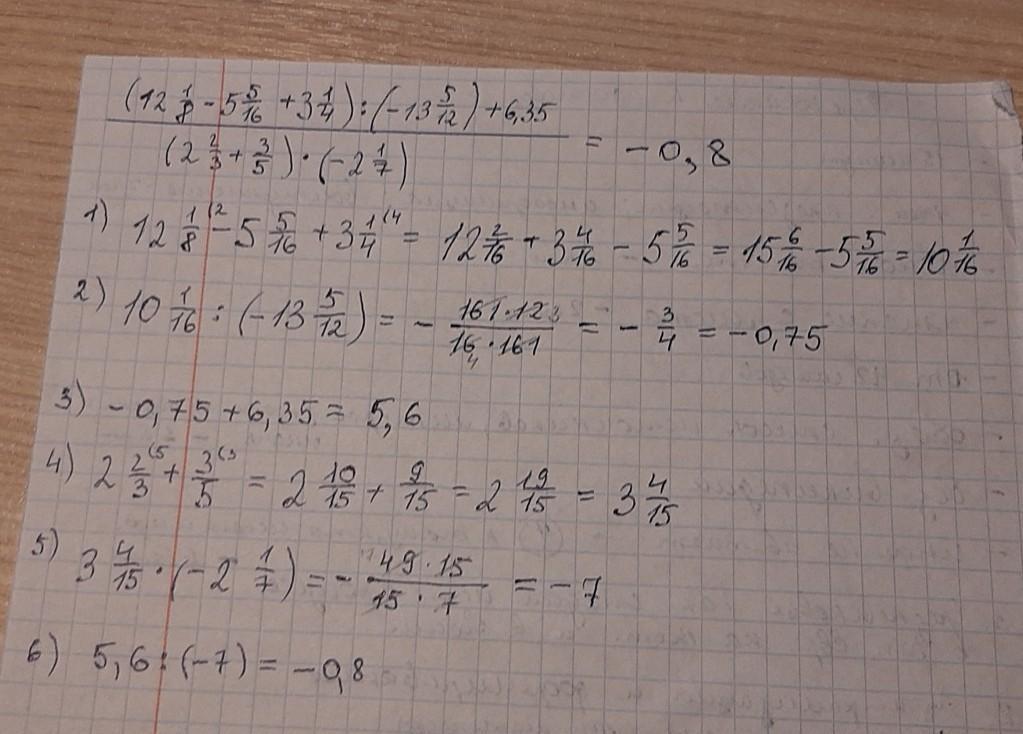 (12 1/8 - 5 5/16 + 3 1/4) : (-13 5/12) + 6,35
(2 2/3 + 3/5) · (-2 1/7) = -0,8
1) 12 1/8 (2 - 5 5/16 + 3 1/4 (4 = 12 2/16 + 3 4/16 - 5 5/16 = 15 6/16 - 5 5/16 = 10 1/16
2) 10 1/16 : (-13 5/12) = - 161·12 3/16 4·161 = - 3/4 = -0,75
3) -0,75 + 6,35 = 5,6
4) 2 2/3 (5 + 3/5 (3 = 2 10/15 + 9/15 = 2 19/15 = 3 4/15
5) 3 4/15 · (-2 1/7) = - 49·15/15·7 = -7
6) 5,6 : (-7) = -0,8